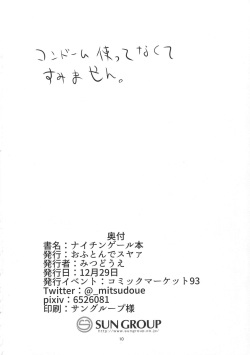 コンドーム使ってなくて
すみません。
奥付
書名：ナイチンゲール本
発行：おふとんでスヤァ
発行者：みつどうえ
発行日：12月29日
発行イベント：コミックマーケット93
Twitter：@_mitsudoue
pixiv：6526081
印刷：サングループ様
SUN GROUP
http://www.sungroup.co.jp/